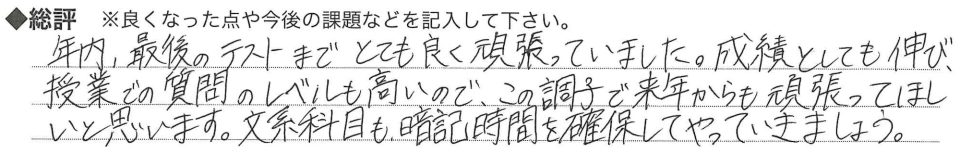 ◆総評 ※良くなった点や今後の課題などを記入して下さい。
年内,最後のテストまでとても良く頑張っていました。成績としても伸び、
授業での質問のレベルも高いので、この調子で来年からも頑張ってほし
いと思います。文系科目も、暗記時間を確保してやっていきましょう。